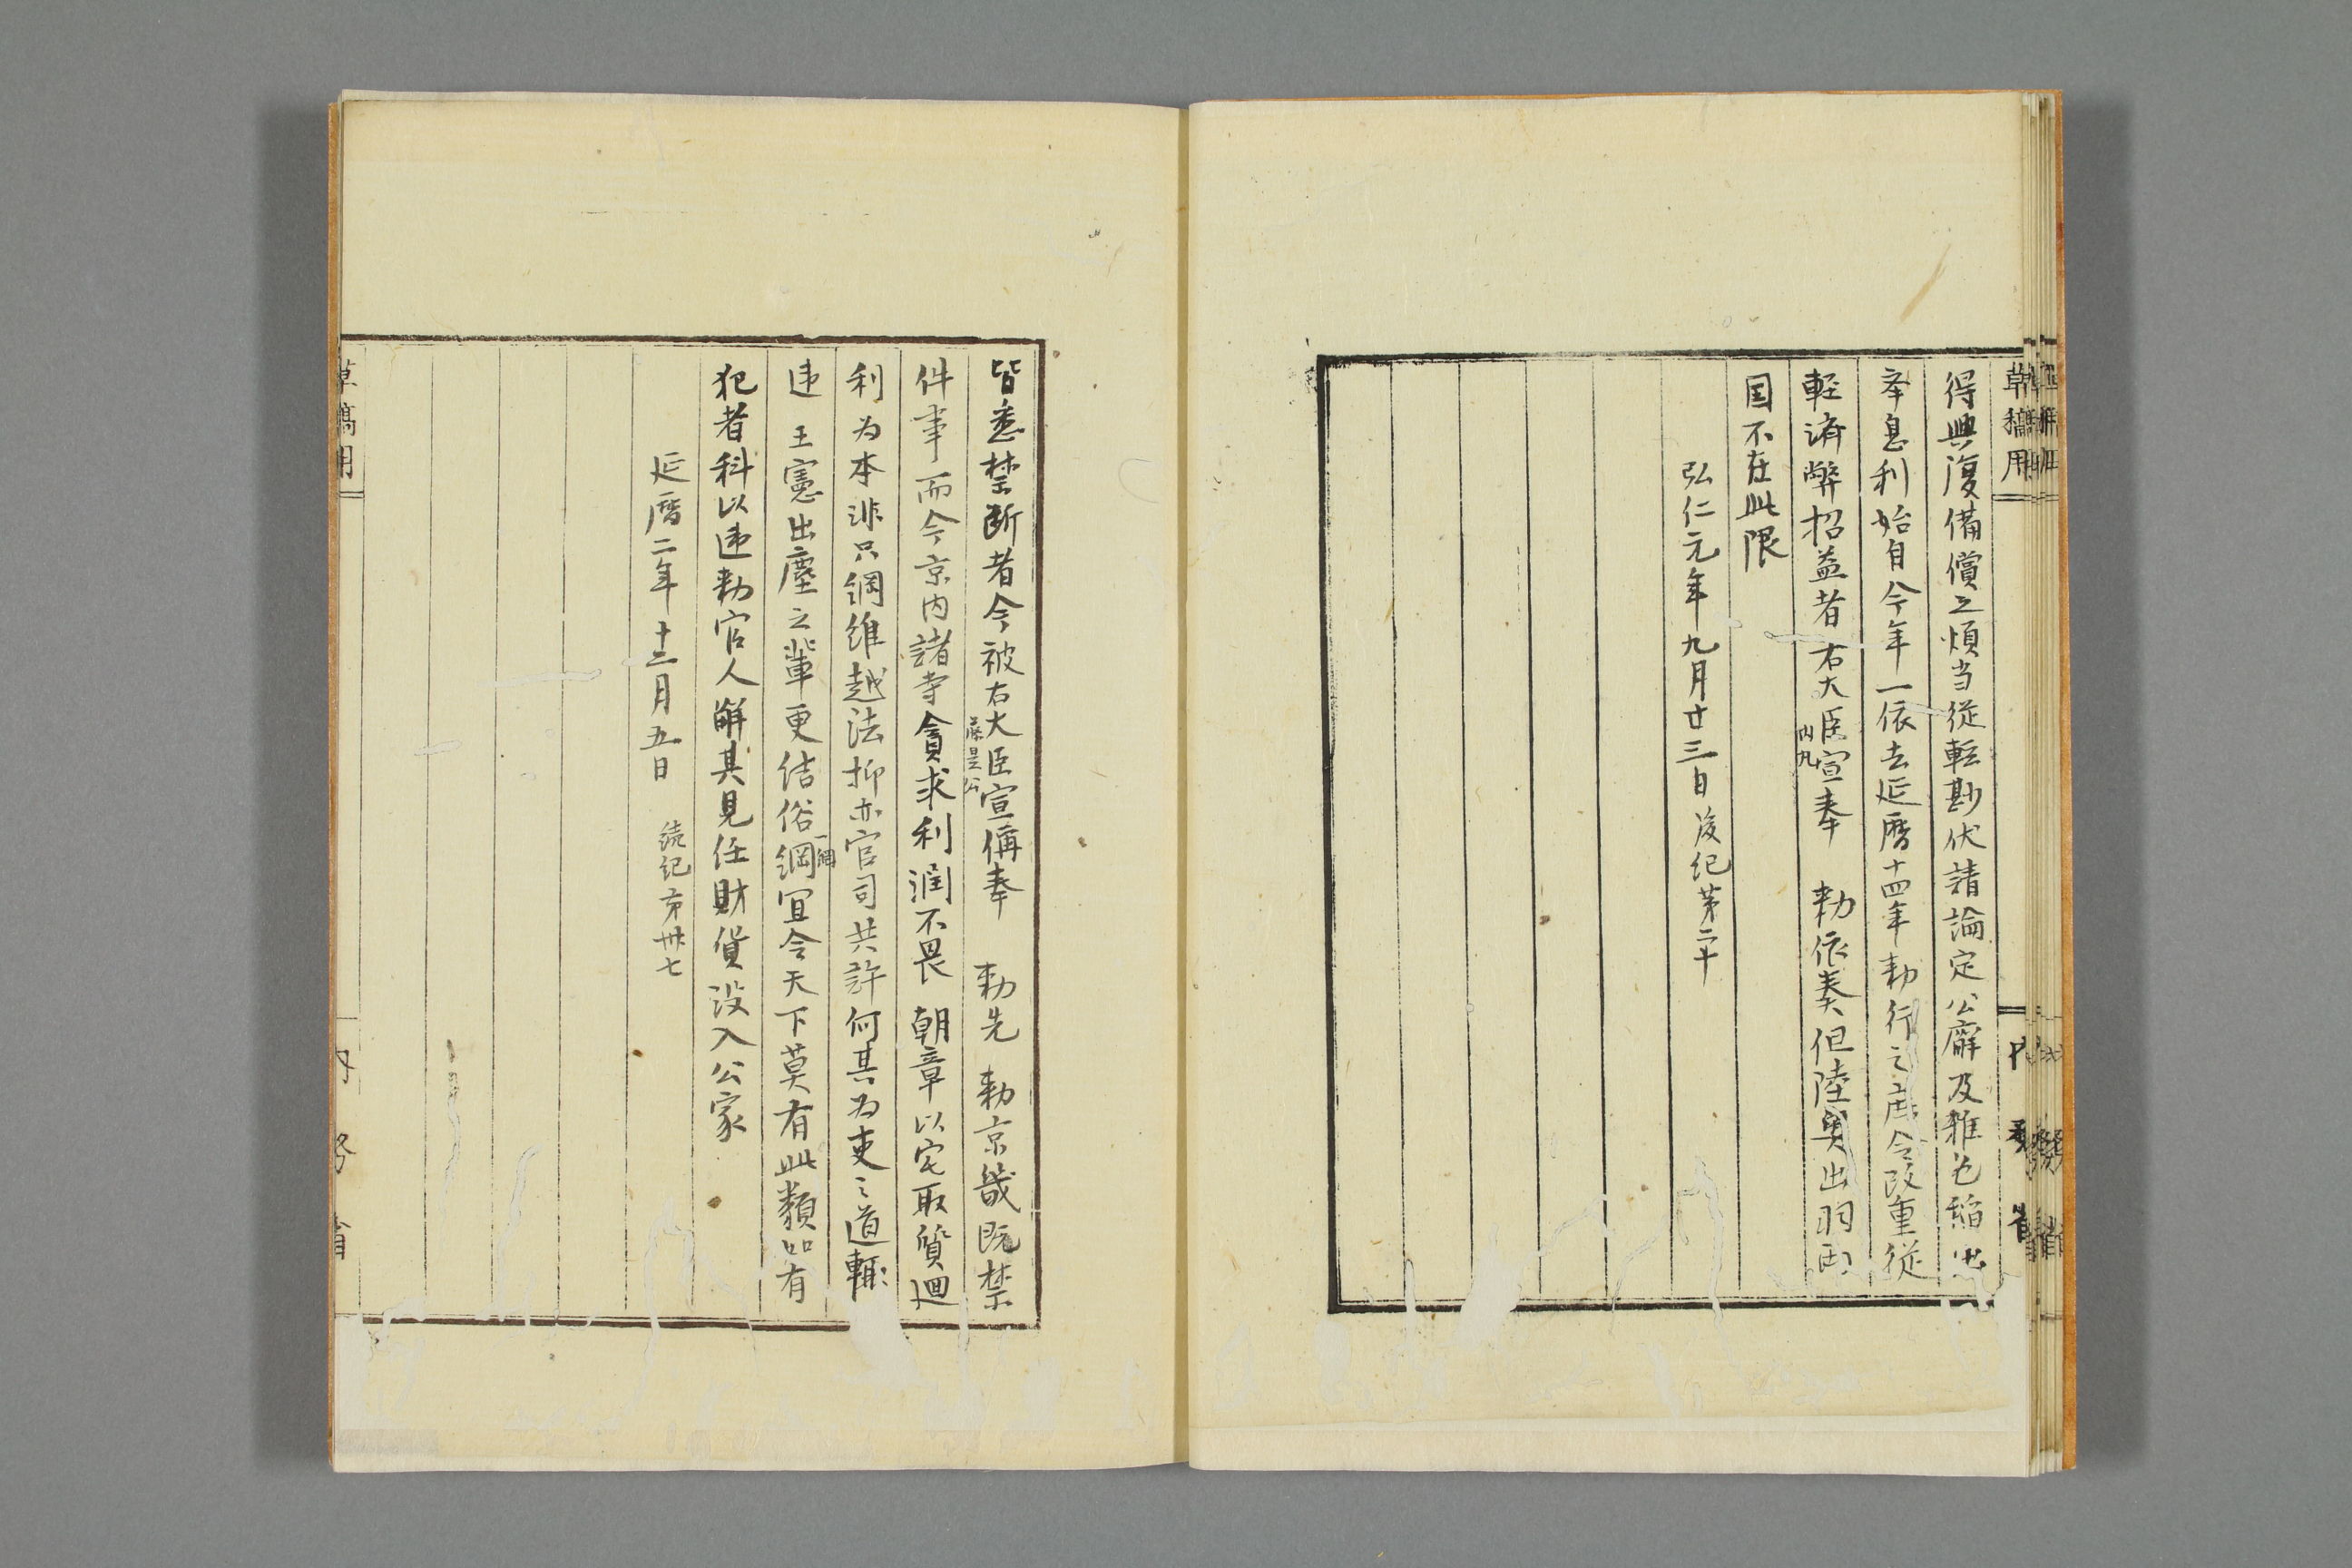 草稿用
得興復備償之煩当従転勘伏請論定公廨及雑色稲出
挙息利始自今年一依去延暦十四年勅行之庶令改重従
軽済弊招益者右大臣宣奉　勅依奏但陸奥出羽両
内丸
国不在此限
弘仁元年九月廿三日後紀第二十
皆悉禁断者今被右大臣宣偁奉　勅先　勅京畿既禁
藤是公
件事而今京内諸寺貪求利潤不畏　朝章以宅取質廻
利为本非只綱維越法抑亦官司共許何其为吏之道輙
违　王憲出塵之輩更結俗綱宜令天下莫有此類如有
犯者科以违勅官人解其見任財貨没入公家
延暦二年十二月五日　続紀第卅七
草稿用